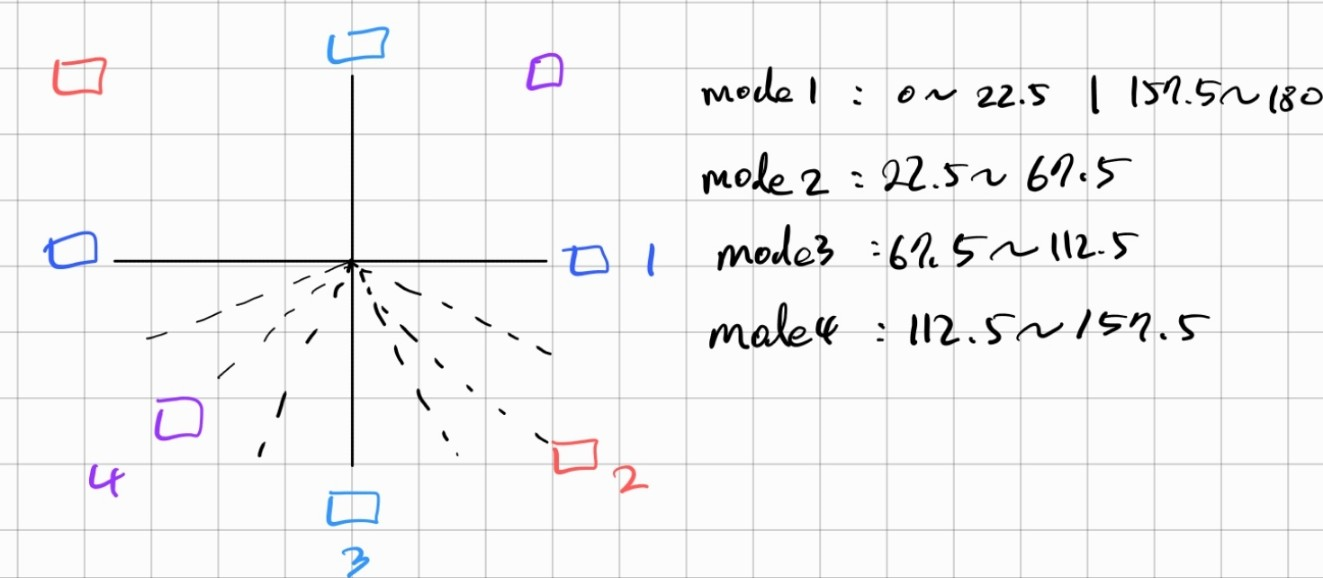 mode 1 : 0 ~ 22.5 | 157.5 ~ 180
mode 2 : 22.5 ~ 67.5
mode3 : 67.5 ~ 112.5
mode4 : 112.5 ~ 157.5
1
2
4
3